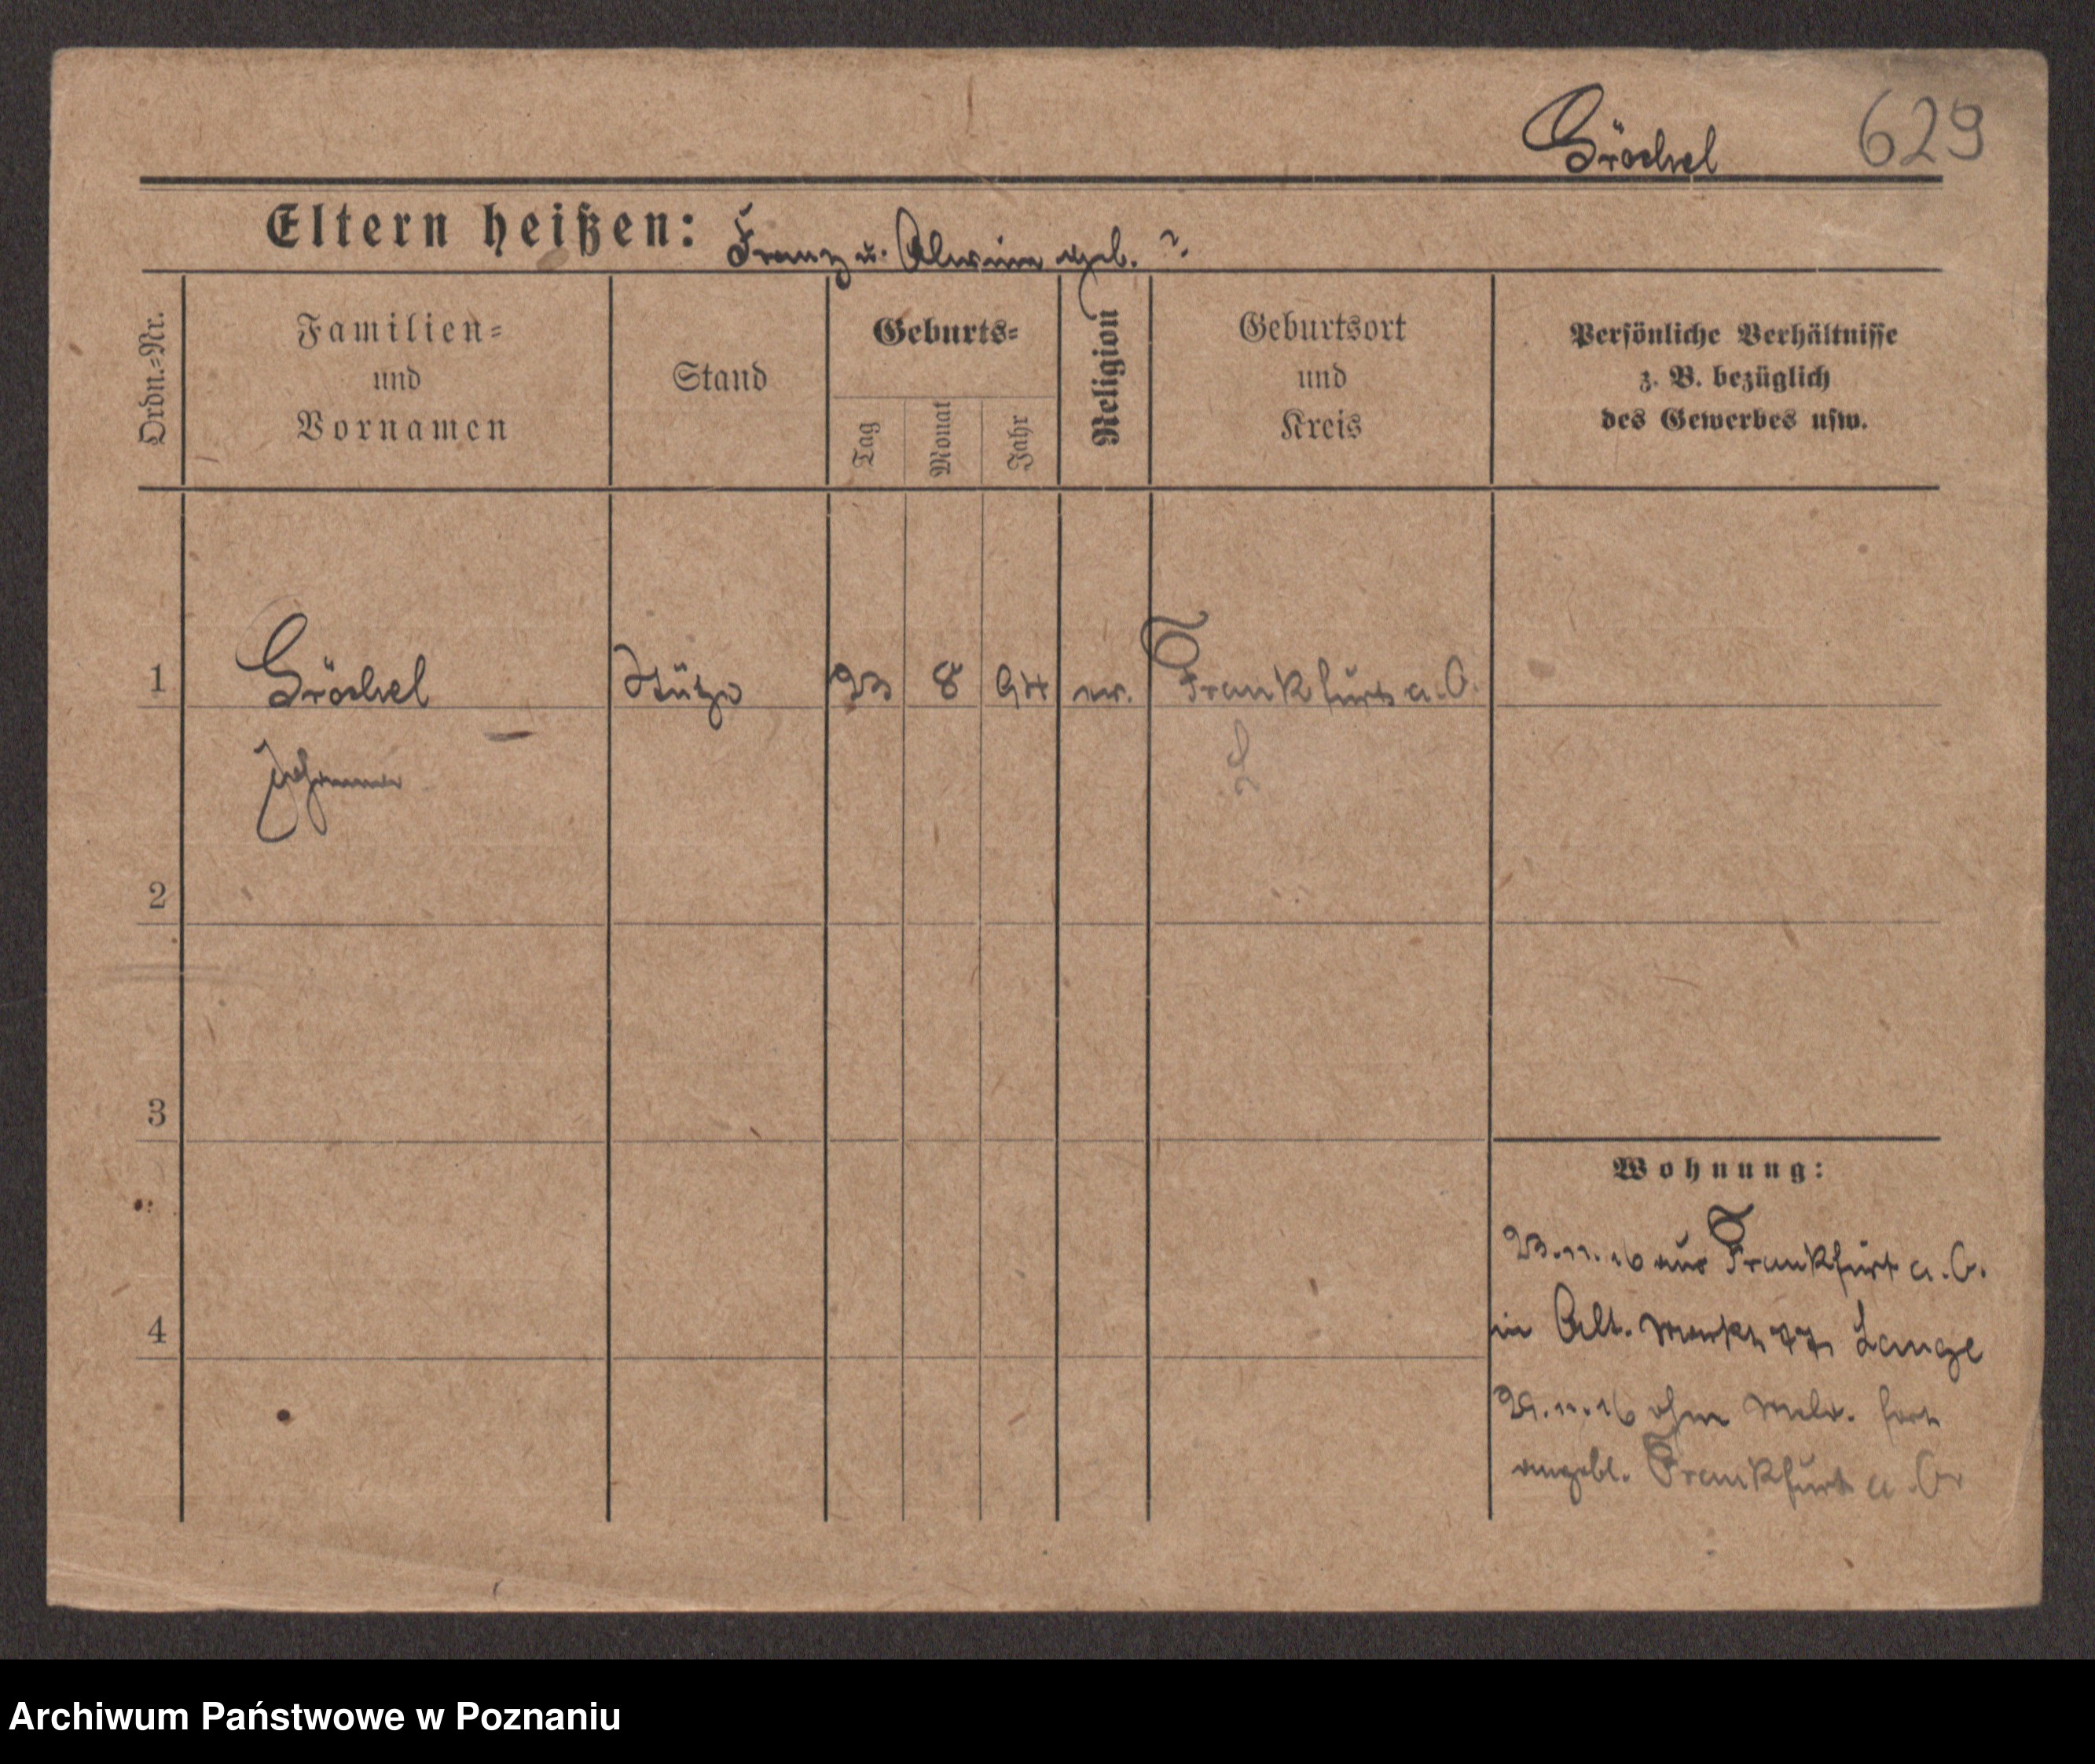 Gröchel 629
Eltern heißen: Franz u. Alwine geb. ?
Ordn.=Nr.
Familien=
und
Vornamen
Stand
Geburts=
Tag
Monat
Jahr
Religion
Geburtsort
und
Kreis
Persönliche Verhältnisse
z. B. bezüglich
des Gewerbes usw.
1 Gröchel Stütze 23 8 94 ev. Frankfurt a. O.
Johanna
2
3
4
Wohnung:
23.11.16 aus Frankfurt a. O.
in Alt. Markt 77, Lange
29.11.16 ohne Meld. fort
angebl. Frankfurt a. O.
Archiwum Państwowe w Poznaniu